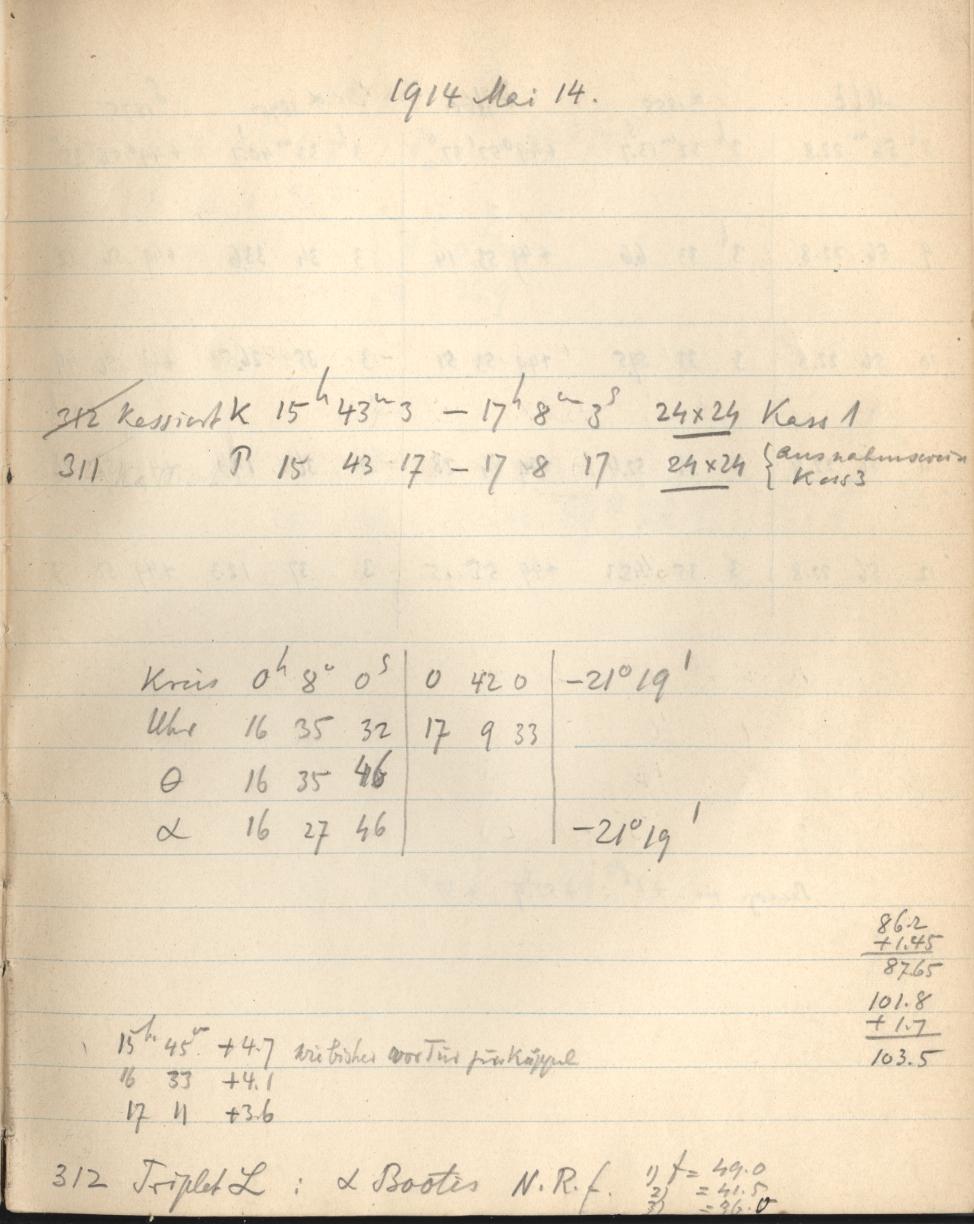 1914 Mai 14.
312 Kassiert K 15h 43m 3 – 17h 8m 3s 24×24 Kass 1
311 P 15 43 17 – 17 8 17 24×24 { ausnahmsweise
Kass 3
Kreis 0h 8m 0s | 0 42 0 | –21° 19'
Uhr 16 35 32 | 17 9 33
θ 16 35 46
α 16 27 46 –21° 19'
86.2
+1.45
87.65
101.8
+1.7
103.5
15h 45m +4.7 wie bisher vor Tür zur Kuppel
16 33 +4.1
17 11 +3.6
312 Triplet L : α Bootis N.R.f. 1) f = 49.0
2) = 41.5
3) = 46.0